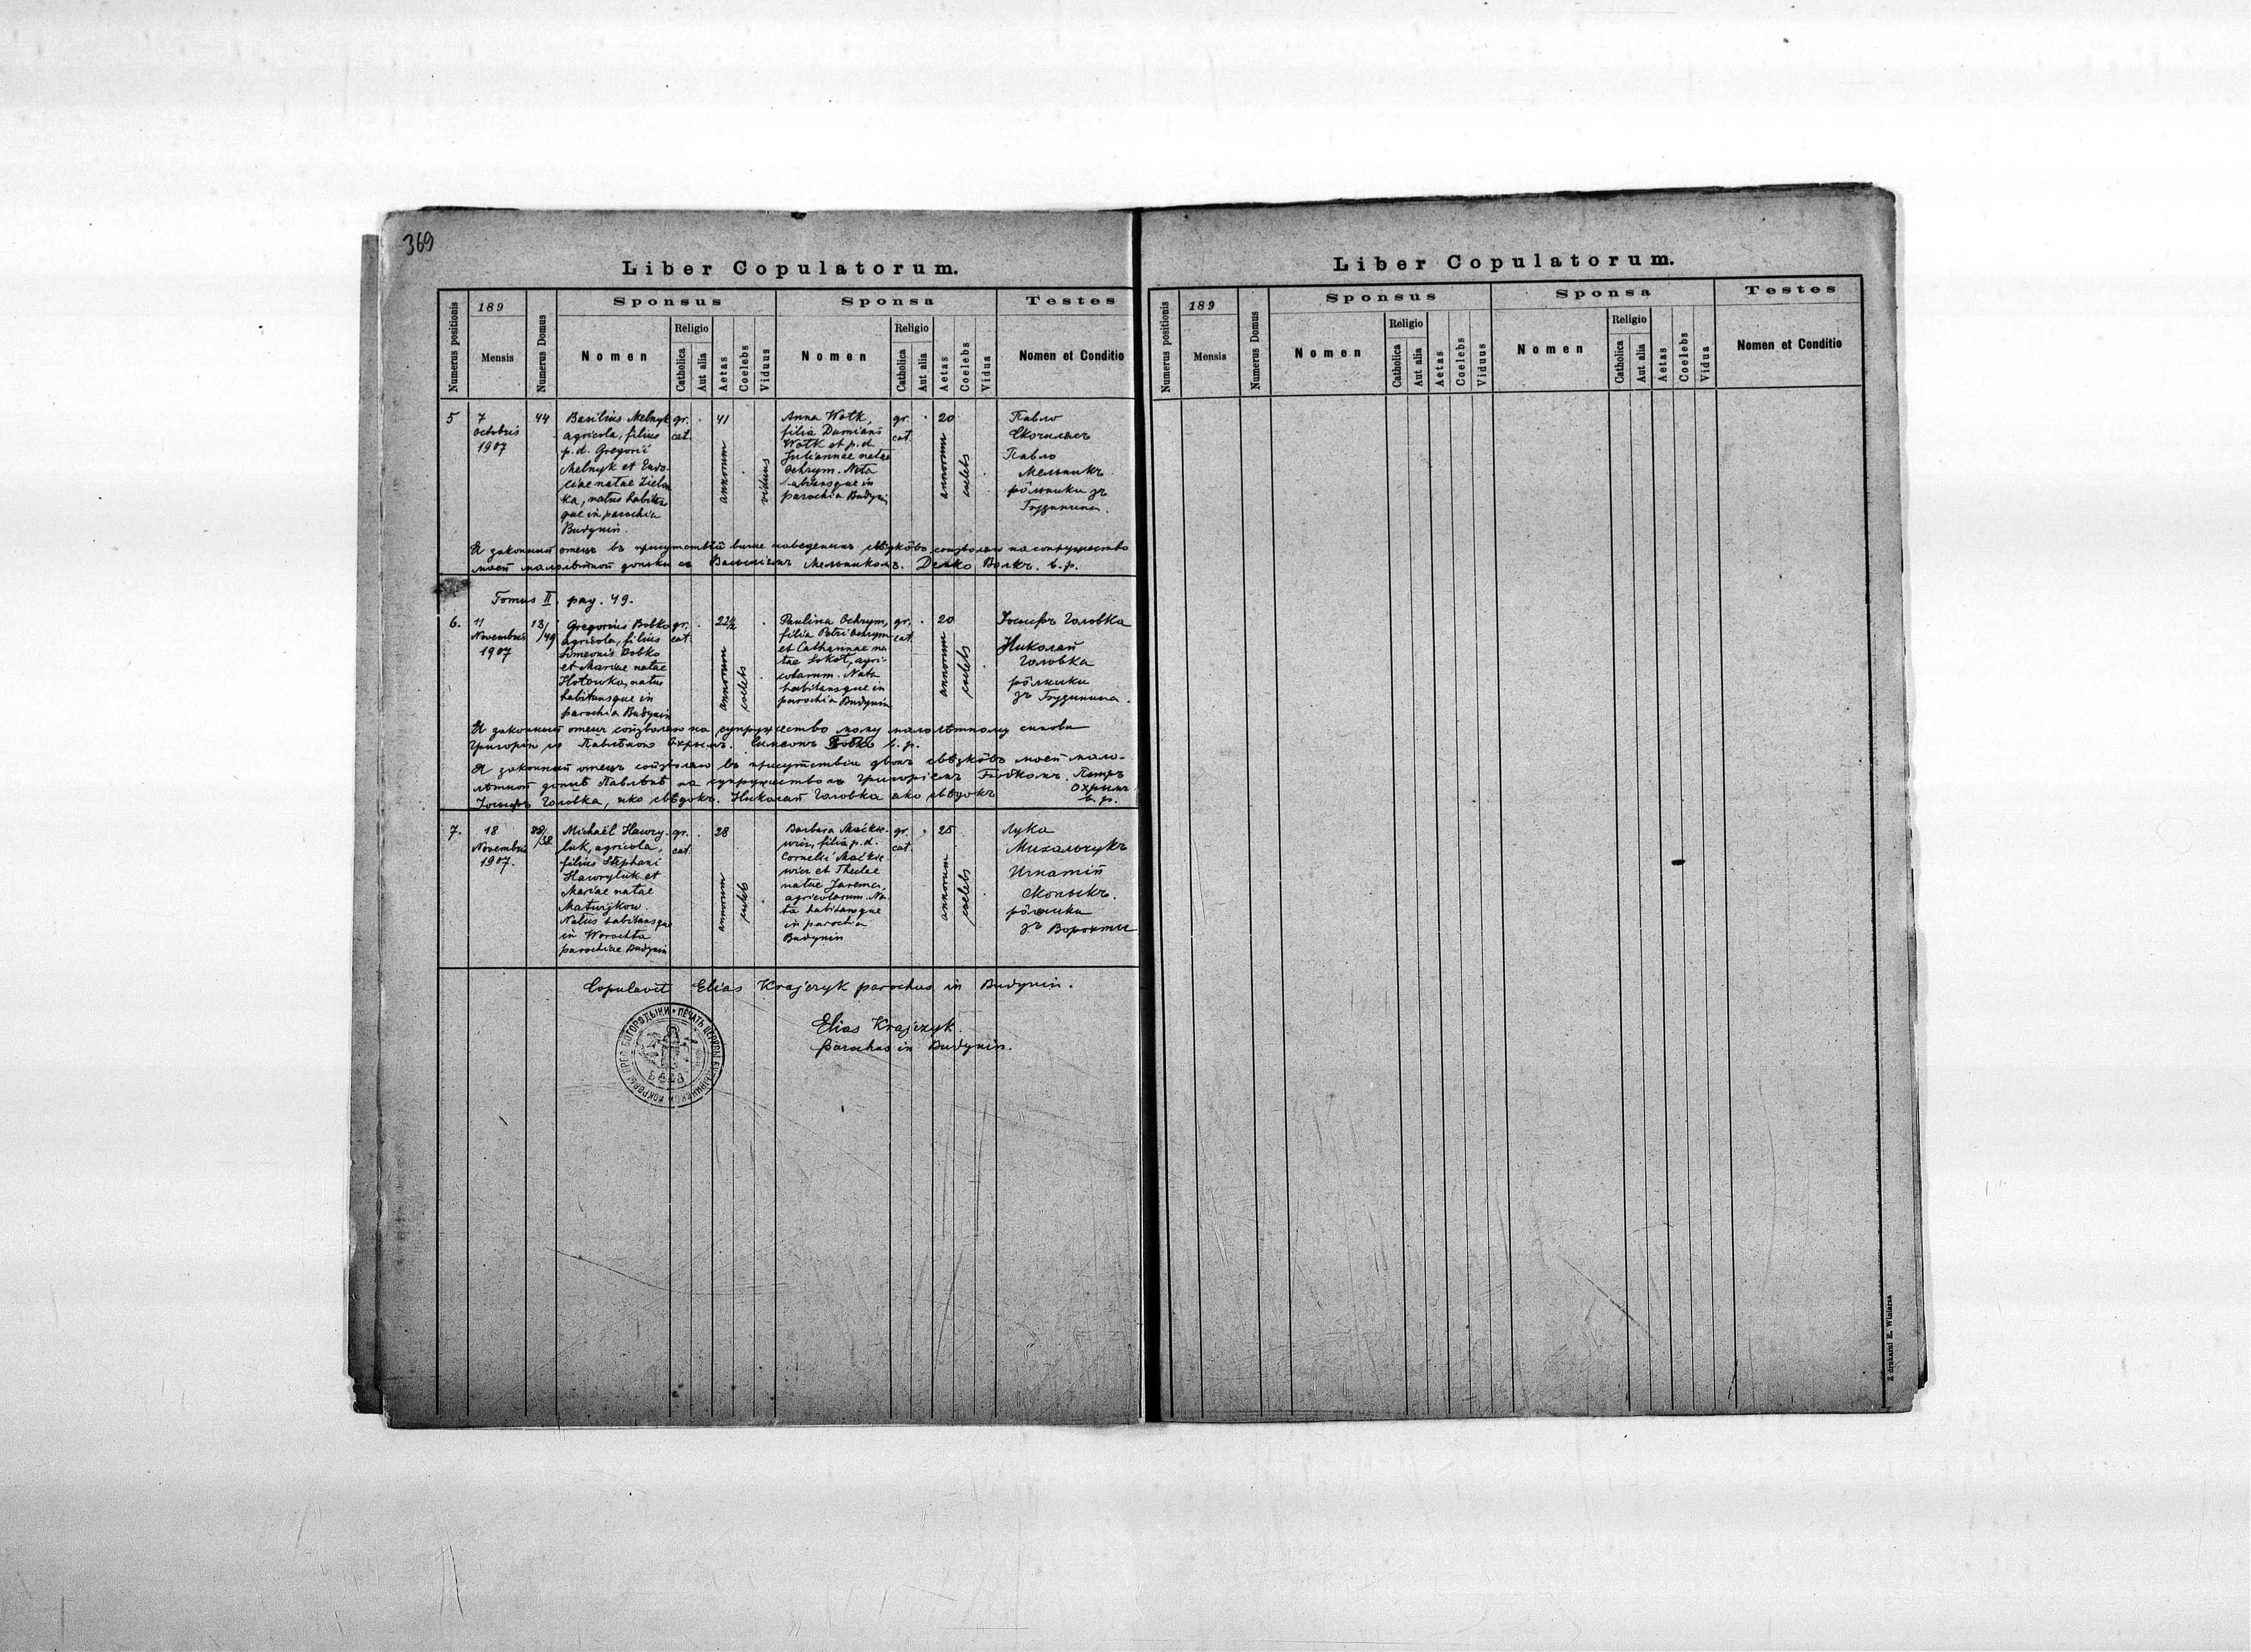 369
Liber Copulatorum.
Numerus positionis
189
Mensis
Numerus Domus
Sponsus
Nomen
Religio
Catholica
Aut alia
Aetas
Coelebs
Viduus
Sponsa
Nomen
Religio
Catholica
Aut alia
Aetas
Coelebs
Vidua
Testes
Nomen et Conditio
5
7
octobris
1907
44
Basilius Melnyk
agricola, filius
p. d. Gregorii
Melnyk et Eudo-
ciae natae Zielen
ka, natus habitans
que in parochia
Budynin.
gr.
cat.
41
annorum
viduus
Anna Wołk,
filia Damiani
Wołk et p. d.
Juliannae natae
Ochrym. Nata
abitansque in
parochia Budynin
gr.
cat.
20
annorum
coelebs
Павло
Скочиляс
Павло
Мельникъ
рôльники зъ
Будинина.
Я законный отець въ присутствіи выше наведеныхъ свѣдкôвъ соизволяю на сопружество
моей малолѣтной доньки съ Васыліемъ Мельникомъ. Демко Волкъ. в. р.
Tomus II. pag. 49.
6.
11
Novembris
1907
13/
/49
Gregorius Bobko
agricola, filius
Simeonis Bobko
et Mariae natae
Hołowka, natus
habitansque in
parochia Budynin
gr.
cat.
22½
annorum
coelebs
Paulina Ochrym,
filia Petri Ochrym
et Catharinae na
tae Sokoł, agri-
colarum. Nata
habitansque in
parochia Budynin
gr.
cat.
20
annorum
coelebs
Іосифъ Головка
Николай
Головка
рôльники
зъ Будинина.
Я законный отець соизволяю на супружество мому малолѣтному синови
Григорію съ Павлѣною Охрымъ. Симеонъ Бобко в. р.
Я законный отець соизволяю въ присутствіи двохъ свѣдкôвъ моей мало-
лѣтной доньцѣ Павлѣнѣ на супружество съ Григоріемъ Бобкомъ. Петръ
Іосифъ Головка, яко свѣдокъ. Николай Головка яко свѣдокъ Охрымъ
в. р.
7.
18
Novembris
1907.
/38
Michaël Hawry-
luk, agricola,
filius Stephani
Hawryluk et
Mariae natae
Matwijkow.
Natus habitansque
in Worochta
parochiae Budynin
gr.
cat.
28
annorum
coelebs
Barbara Maćke-
wicz, filia p. d.
Cornelii Maćke
wicz et Theclae
natae Jarema,
agricolarum. Na-
ta habitansque
in parochia
Budynin
gr.
cat.
25
annorum
coelebs
Лука
Михальчукъ
Игнатій
рôльники
зъ Ворохты
Copulavit Elias Krajczyk parochus in Budynin.
Elias Krajczyk
parochus in Budynin.
Liber Copulatorum.
Numerus positionis
189
Mensis
Numerus Domus
Sponsus
Nomen
Religio
Catholica
Aut alia
Aetas
Coelebs
Viduus
Sponsa
Nomen
Religio
Catholica
Aut alia
Aetas
Coelebs
Vidua
Testes
Nomen et Conditio
Z drukarni E. Winiarza